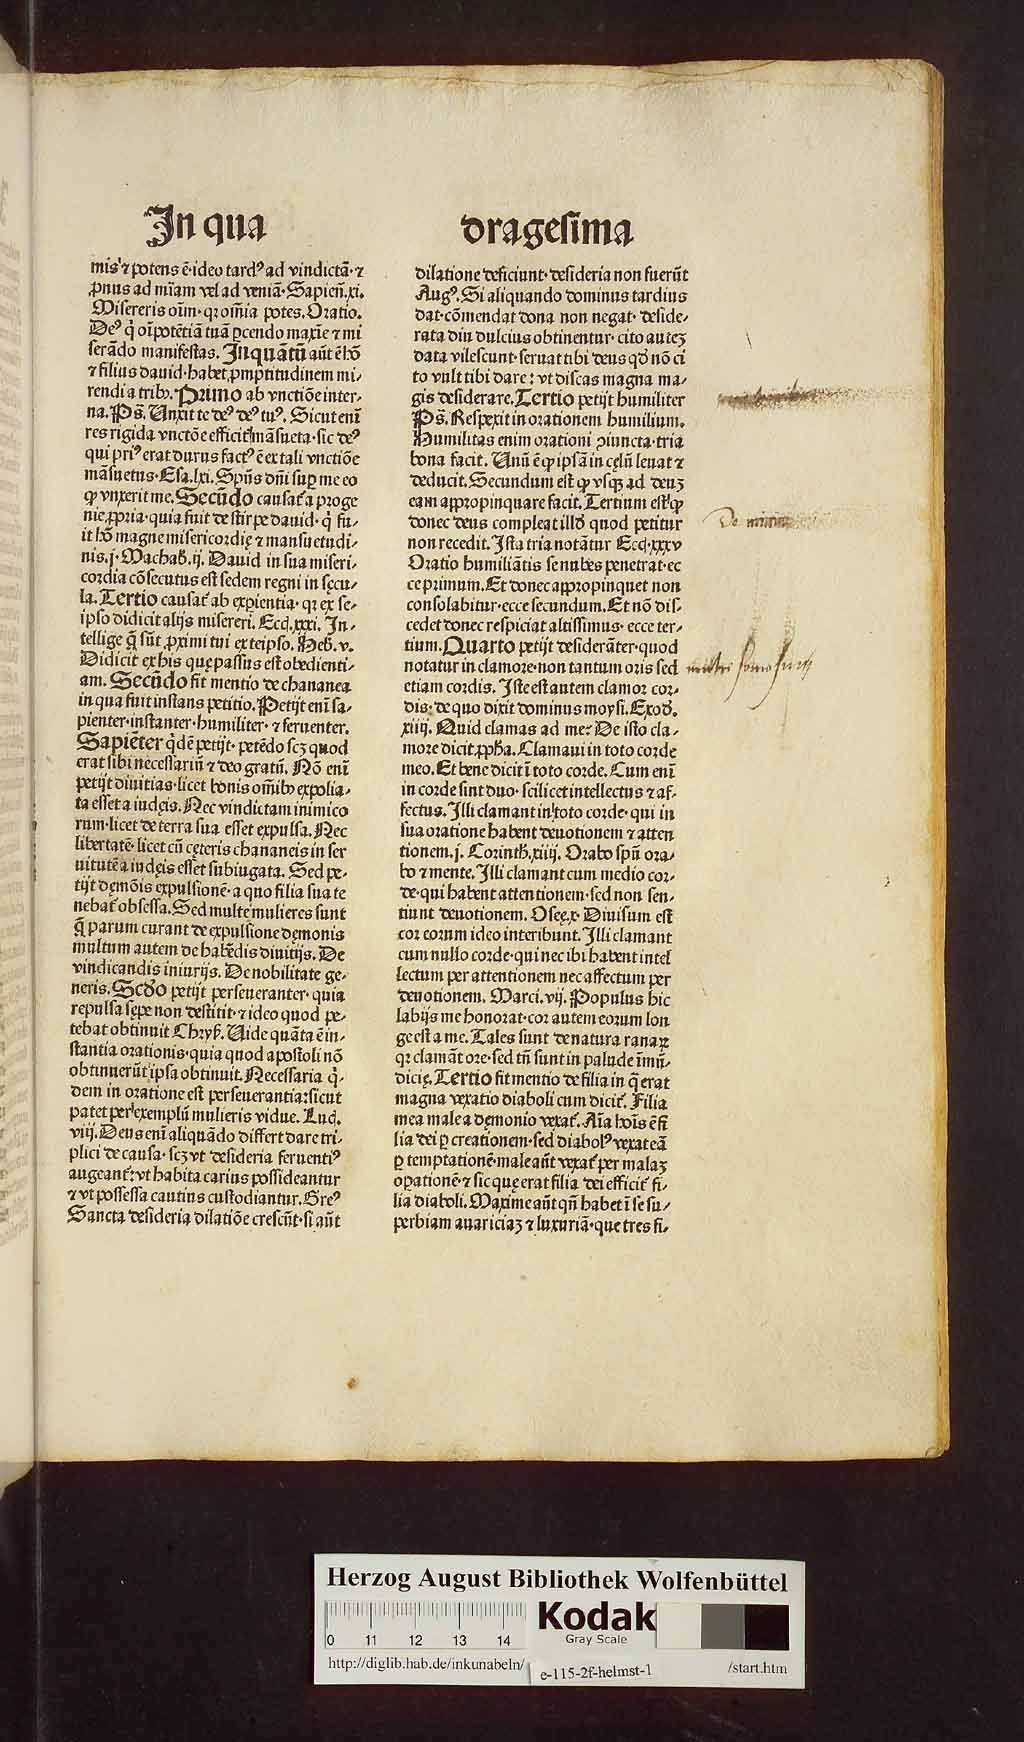 In qua
dragesima
mis' ⁊ potens ē· ideo tardꝰ ad vindictā· ⁊
ꝓnus ad mīam vel ad veniā· Sapien̄. xi.
Misereris oīm· qꝛ om̄ia potes. Oratio.
Deꝰ q̇ oīpotētiā tuā ꝑcendo maxīe ⁊ mi
serādo manifestas. Inquātū aūt ē hō
⁊ filius dauid· habet ꝓmptitudinem mi⸗
rendi a tribꝰ. Primo ab vnctiōe inter⸗
na. Ps̄. Unxit te deꝰ deꝰ tuꝰ. Sicut enī
res rigida vnctōe efficit᷑ māsueta· sic deꝰ
qui priꝰ erat durus factꝰ ē ex tali vnctiōe
māsuetus· Esa. lxi. Spūs dn̄i suꝑ me eo
ꝙ vnxerit me. Secūdo causat᷑ a proge
nie ꝓpria· quia fuit de stirpe dauid· q̇ fu⸗
it hō magne misericordię ⁊ mansuetudi⸗
nis. j· Machab̄. ij. Dauid in sua miseri⸗
cordia cōsecutus est sedem regni in sęcu⸗
la. Tertio causat᷑ ab exꝑientia· qꝛ ex se⸗
ipso didicit alijs misereri. Ecc̄i. xxxi. In⸗
tellige q̄ sūt ꝓximi tui ex teipso. Heb̄. v.
Didicit ex his quę passus est obedienti⸗
am. Secūdo fit mentio de chananea
in qua fuit instans petitio. Petijt enī sa⸗
pienter· instanter· humiliter· ⁊ feruenter.
Sapiēter q̇dē petijt· petēdo scꝫ quod
erat sibi necessariū ⁊ deo gratū. Nō enī
petijt diuitias· licet bonis om̄ibꝰ expolia⸗
ta esset a iudęis. Nec vindictam inimico
rum· licet de terra sua esset expulsa. Nec
libertatē· licet cū cęteris chananeis in ser
uitutē a iudęis esset subiugata. Sed pe⸗
tijt dęmōis expulsionē· a quo filia sua te
nebat᷑ obsessa. Sed multe mulieres sunt
q̄ parum curant de expulsione dęmonis
multum autem de habēdis diuitijs. De
vindicandis iniurijs. De nobilitate ge⸗
neris. Scd̄o petijt perseueranter· quia
repulsa sępe non destitit· ⁊ ideo quod pe⸗
tebat obtinuit Chrys̄. Uide quāta ē in⸗
stantia orationis· quia quod apostoli nō
obtinuerūt ipsa obtinuit. Necessaria q̇⸗
dem in oratione est perseuerantia: sicut
patet per exemplū mulieris vidue. Luc̄.
viij. Deus enī aliquādo differt dare tri⸗
plici de causa· scꝫ vt desideria feruentiꝰ
augeant᷑: vt habita carius possideantur
⁊ vt possessa cautius custodiantur. Greꝰ
Sancta desideria dilatiōe crescūt· si aūt
dilatione deficiunt· desideria non fuerūt
Augꝰ. Si aliquando dominus tardius
dat· cōmendat dona non negat· deside⸗
rata diu dulcius obtinentur· cito auteꝫ
data vilescunt· seruat tibi deus qd̄ nō ci
to vult tibi dare: vt discas magna ma⸗
gis desiderare. Tertio petijt humiliter
Ps̄. Respexit in orationem humilium.
Humilitas enim orationi ↄiuncta· tria
bona facit. Unū ē ꝙ ipsā in cęlū leuat ⁊
deducit. Secundum est ꝙ vsqꝫ ad deuꝫ
eam appropinquare facit. Tertium est· ꝙ
donec deus compleat illd̄ quod petitur
non recedit. Ista tria notātur Ecci̇. xxxv
Oratio humiliātis se nubes penetrat· ec
ce primum. Et donec appropinquet non
consolabitur· ecce secundum. Et nō dis⸗
cedet donec respiciat altissimus· ecce ter⸗
tium. Quarto petijt desiderāter· quod
notatur in clamore· non tantum oris sed
etiam cordis. Iste est autem clamor cor⸗
dis· de quo dixit dominus moysi. Exod̄.
xiiij. Quid clamas ad me: De isto cla⸗
more dicit ꝓph̄a. Clamaui in toto corde
meo. Et bene dicit ī toto corde. Cum enī
in corde sint duo· scilicet intellectus ⁊ af⸗
fectus. Illi clamant in toto corde· qui in
sua oratione habent deuotionem ⁊ atten
tionem. j. Corinth̄. xiiij. Orabo spū ora⸗
bo ⁊ mente. Illi clamant cum medio cor⸗
de· qui habent attentionem· sed non sen⸗
tiunt deuotionem. Oseę. x· Diuisum est
cor eorum ideo interibunt. Illi clamant
cum nullo corde· qui nec ibi habent intel
lectum per attentionem nec affectum per
deuotionem. Marci. vij. Populus hic
labijs me honorat· cor autem eorum lon
ge est a me. Tales sunt de natura ranaꝝ
qꝛ clamāt ore· sed tn̄ sunt in palude īmū⸗
dicię. Tertio fit mentio de filia in q̄ erat
magna vexatio diaboli cum dicit᷑. Filia
mea male a dęmonio vexat᷑. Aīa hoīs ē fi
lia dei ꝑ creationem· sed diabolꝰ vexat eā
ꝑ temptationē· male aūt vexat᷑ per malaꝫ
oꝑationē· ⁊ sic quę erat filia dei efficit᷑ fi⸗
lia diaboli. Maxime aūt qn̄ habet ī se su⸗
perbiam auariciaꝫ ⁊ luxuriā· que tres fi⸗
Herzog August Bibliothek Wolfenbüttel
0 11 12 13 14
Kodak
Gray Scale
http://diglib.hab.de/inkunabeln/
e-115-2f-helmst-1
/start.htm